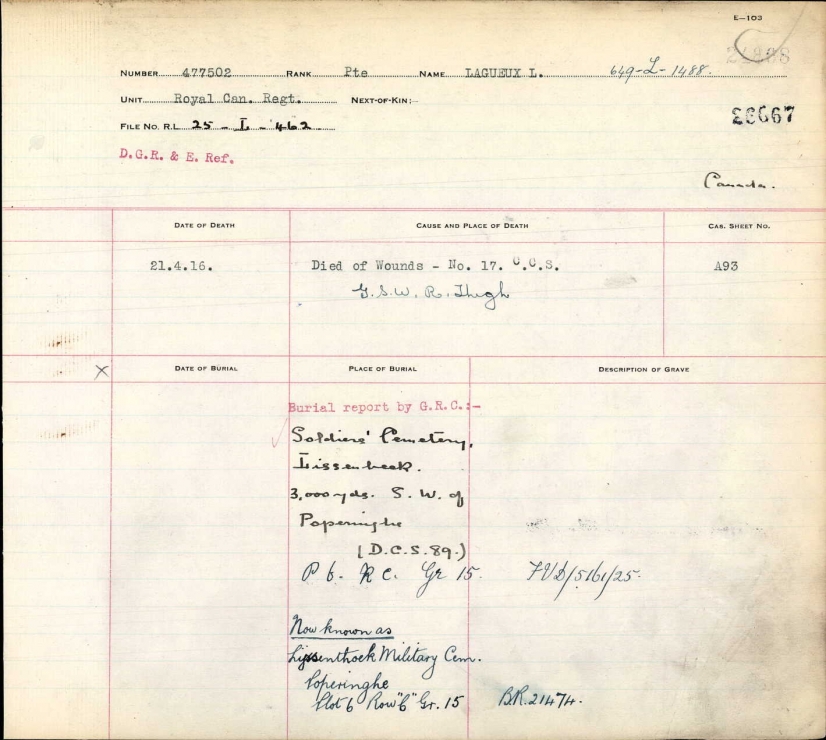 E—103
NUMBER 477502 RANK Pte NAME LAGUEUX L. 649-L-1488.
UNIT Royal Can. Regt. NEXT-OF-KIN:—
FILE NO. R.L. 25 - L - 462
D.G.R. & E. Ref.
Canada.
DATE OF DEATH CAUSE AND PLACE OF DEATH CAS. SHEET NO.
21.4.16. Died of Wounds - No. 17. C.C.S. A93
G.S.W. R. Thigh
X DATE OF BURIAL PLACE OF BURIAL DESCRIPTION OF GRAVE
Burial report by G.R.C.:-
Soldiers' Cemetery,
Lissenhoek.
3,000 yds. S. W. of
Poperinghe
(D.C.S. 89.)
P 6. R C. Gr 15.
Now known as
Lijssenthoek Military Cem.
Poperinghe
Plot 6 Row "C" Gr. 15 B.R. 21474.